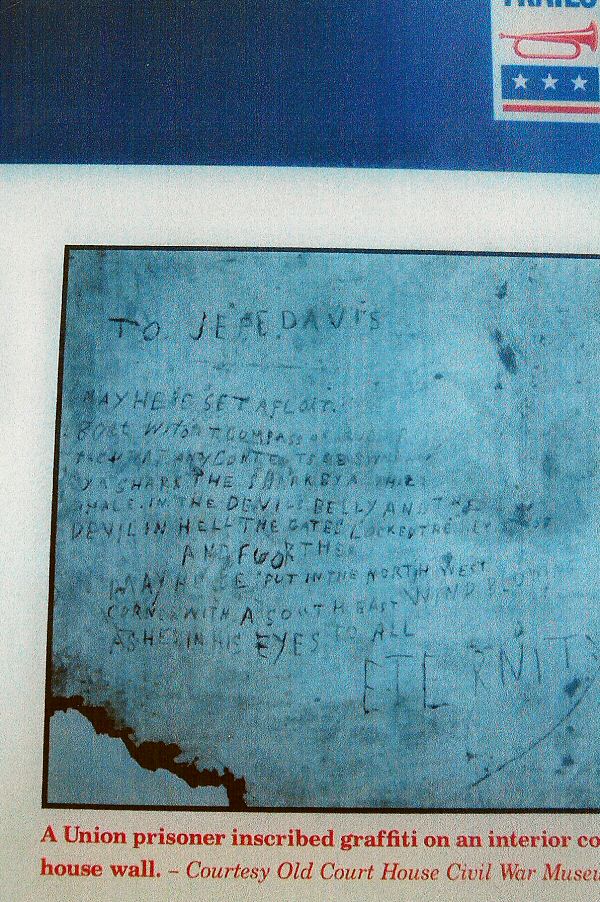 TRAILS
TO JEFF. DAVIS
MAY HE BE SET AFLOAT.
BOAT WITHOUT COMPASS
THAT ANY CONTENTS BE
SHARK THE SHARK BY A
WHALE. IN THE DEVILS BELLY AND THE
DEVIL IN HELL THE GATES LOCKED THE KEY
AND FURTHER
MAY HE BE PUT IN THE NORTH WEST
CORNER WITH A SOUTH EAST WIND BLOWING
ASHES IN HIS EYES TO ALL
ETERNITY
A Union prisoner inscribed graffiti on an interior co
house wall. – Courtesy Old Court House Civil War Museu